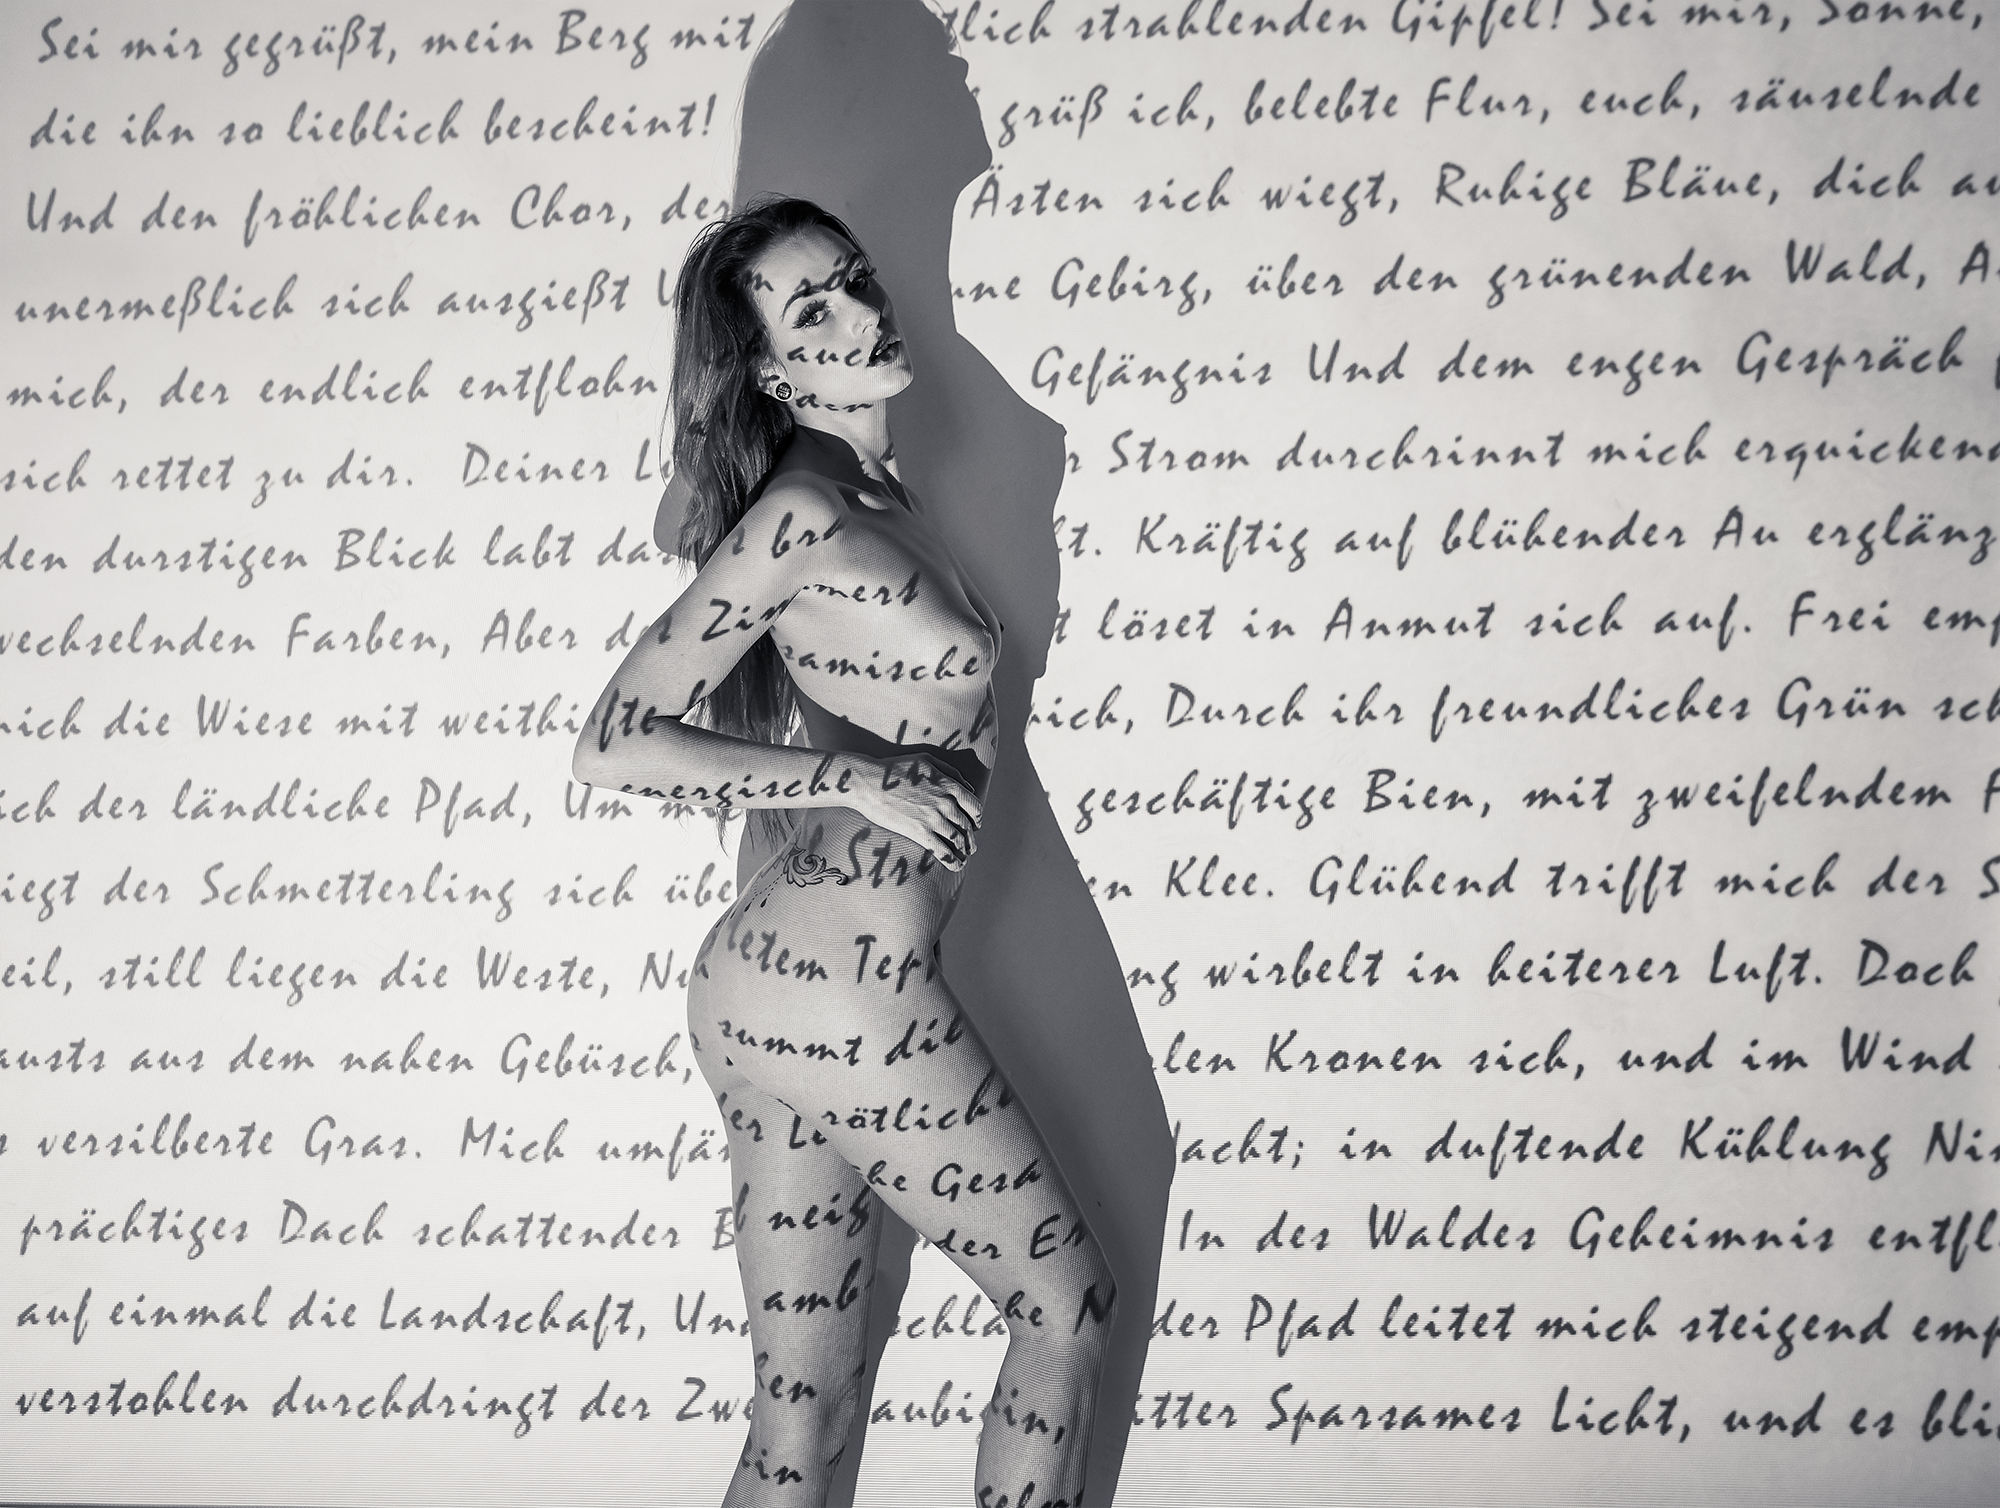 Sei mir gegrüßt, mein Berg mit tlich strahlenden Gipfel! Sei mir, Sonne,
die ihn so lieblich bescheint! grüß ich, belebte Flur, euch, säuselnde
Und den fröhlichen Chor, der Ästen sich wiegt, Ruhige Bläue, dich au
unermeßlich sich ausgießt U m une Gebirg, über den grünenden Wald, A
mich, der endlich entflohn auch Gefängnis Und dem engen Gespräch
sich rettet zu dir. Deiner Lü den r Strom durchrinnt mich erquickend
den durstigen Blick labt das r bra ht. Kräftig auf blühender Au erglänz
wechselnden Farben, Aber der Zim mert t löset in Anmut sich auf. Frei emp
mich die Wiese mit weithi fte ramische mich, Durch ihr freundliches Grün sch
ich der ländliche Pfad, Um mich energische Li geschäftige Bien, mit zweifelndem F
iegt der Schmetterling sich übe Stra en Klee. Glühend trifft mich der S
eil, still liegen die Weste, Nu letem Tep ng wirbelt in heiterer Luft. Doch
austs aus dem nahen Gebüsch, summt die len Kronen sich, und im Wind
s versilberte Gras. Mich umfän er rötliche Nacht; in duftende Kühlung Ni
prächtiges Dach schattender B neig he Gesa der Er In des Waldes Geheimnis entfl
auf einmal die Landschaft, Und amb che N schla der Pfad leitet mich steigend emp
verstohlen durchdringt der Zwe ken laubi in, itter Sparsames Licht, und es bli
in geln